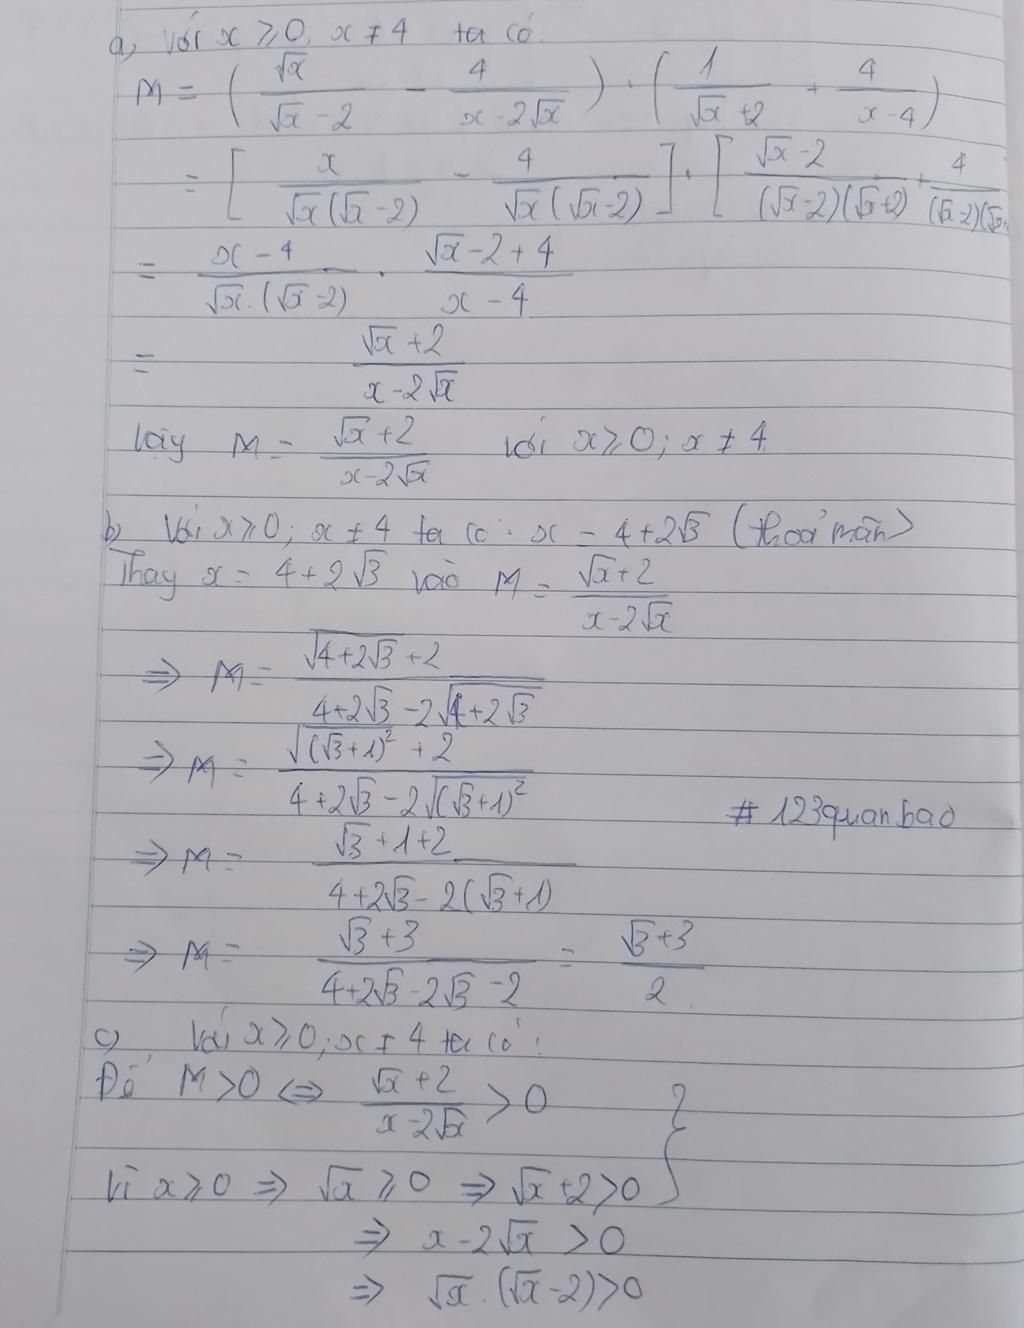 a, Với x ≥ 0, x ≠ 4 ta có:
M = ( √x/(√x - 2) - 4/(x - 2√x) ) . ( 1/(√x + 2) + 4/(x - 4) )
= [ x/(√x(√x - 2)) - 4/(√x(√x - 2)) ] . [ (√x - 2)/((√x - 2)(√x + 2)) + 4/((√x - 2)(√x+
= (x - 4)/(√x.(√x - 2)) . (√x - 2 + 4)/(x - 4)
= (√x + 2)/(x - 2√x)
Vậy M = (√x + 2)/(x - 2√x) với x ≥ 0; x ≠ 4
b, Với x ≥ 0; x ≠ 4 ta có: x = 4 + 2√3 (thoả mãn)
Thay x = 4 + 2√3 vào M = (√x + 2)/(x - 2√x)
⇒ M = (√(4 + 2√3) + 2)/(4 + 2√3 - 2√(4 + 2√3))
⇒ M = (√((√3 + 1)²) + 2)/(4 + 2√3 - 2√((√3 + 1)²))
# 123quanbao
⇒ M = (√3 + 1 + 2)/(4 + 2√3 - 2(√3 + 1))
⇒ M = (√3 + 3)/(4 + 2√3 - 2√3 - 2) = (√3 + 3)/2.
c) Với x ≥ 0; x ≠ 4 ta có:
Để M > 0 ⇔ (√x + 2)/(x - 2√x) > 0 }
Vì x ≥ 0 ⇒ √x ≥ 0 ⇒ √x + 2 > 0
⇒ x - 2√x > 0
⇒ √x.(√x - 2) > 0